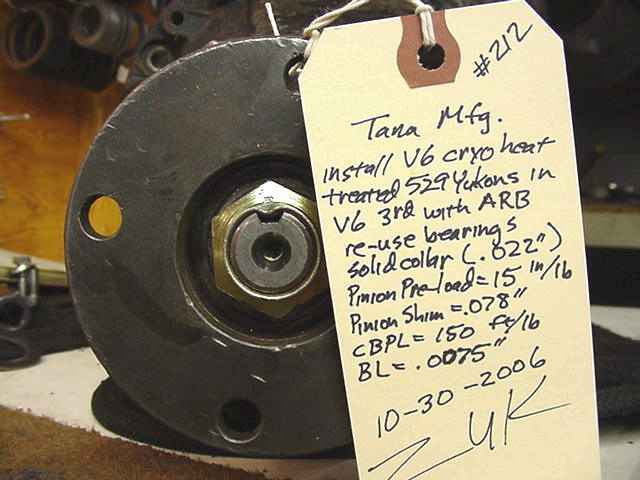 #212
Tana Mfg.
install V6 cryo heat
treated 529 Yukons in
V6 3rd with ARB
re-use bearings
solid collar (.022")
Pinion Pre-load = 15 in/lb
Pinion Shim = .078"
CBPL = 150 ft/lb
BL = .0075"
10-30-2006
ZUK